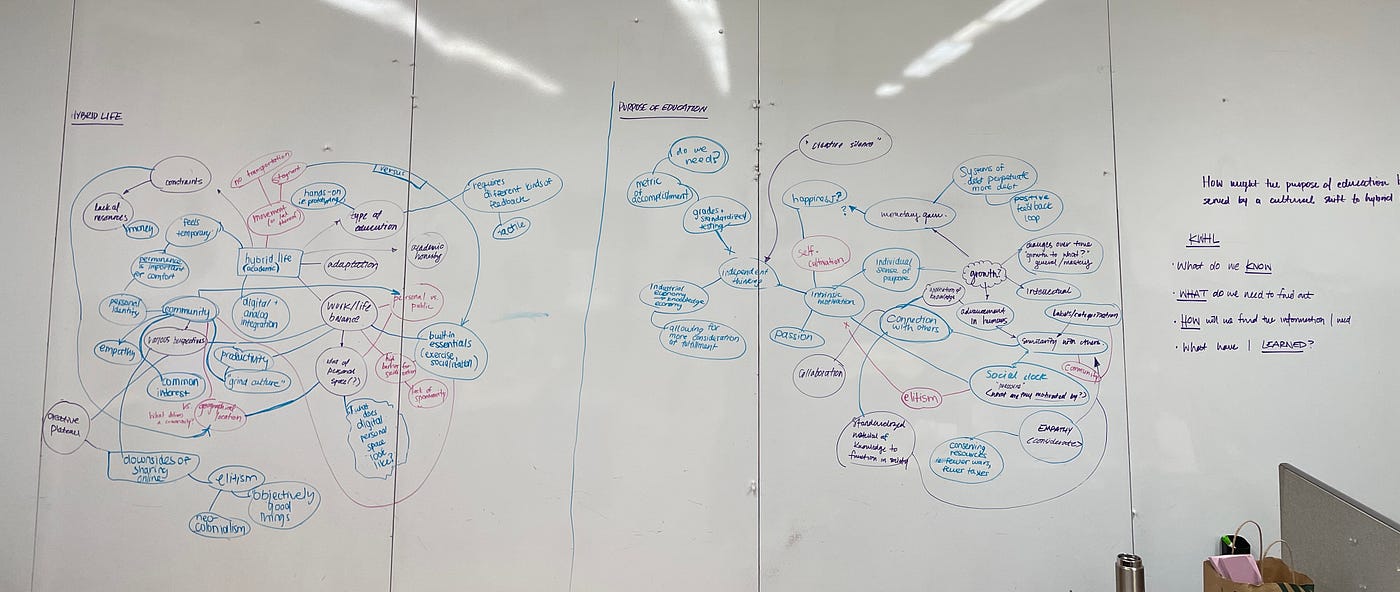 HYBRID LIFE
constraints
lack of
resources
money
no transportation
stagnant
movement
hands-on
i.e. prototyping
versus
type of
education
requires
different kinds of
feedback
tactile
feels
temporary
permanence
is important
for comfort
hybrid life
(academic)
adaptation
academic
honesty
personal
identity
community
digital +
analog
integration
work/life
balance
personal vs.
public
empathy
various perspectives
productivity
"grind culture"
built-in
essentials
(exercise,
socialization)
common
interest
vs.
What defines
a community?
geographical
location
use of
personal
space(?)
high
barrier for
social
lack of
spontaneity
what
does
digital
personal
space
look
like?
creative
plateau
downsides of
sharing
online
elitism
objectively
good
things
neo-
colonialism
PURPOSE OF EDUCATION
do we
need?
metric
of
accomplishment
grades +
standardized
testing
independent
thinking
Industrial
economy
→ knowledge
economy
allowing for
more consideration
of fulfillment
happiness?
?
self-
cultivation
monetary gain
Systems of
debt perpetuate
more debt
positive
feedback
loop
individual
sense of
purpose
growth?
changes over time
"growth to what?"
general/mastery
intellectual
advancement
in humans
intrinsic
motivation
passion
Connection
with others
Labels/categorization
similarity with others
Community
Collaboration
elitism
Social clock
"pressure"
(what are they motivated by?)
Standardized
material of
knowledge to
function in society
EMPATHY
(considerate)
conserving
resources
i.e. fewer wars,
fewer taxes
How might the purpose of education b
served by a cultural shift to hybrid
KWHL
· What do we KNOW
· WHAT do we need to find out
· HOW will we find the information I need
· What have I LEARNED?